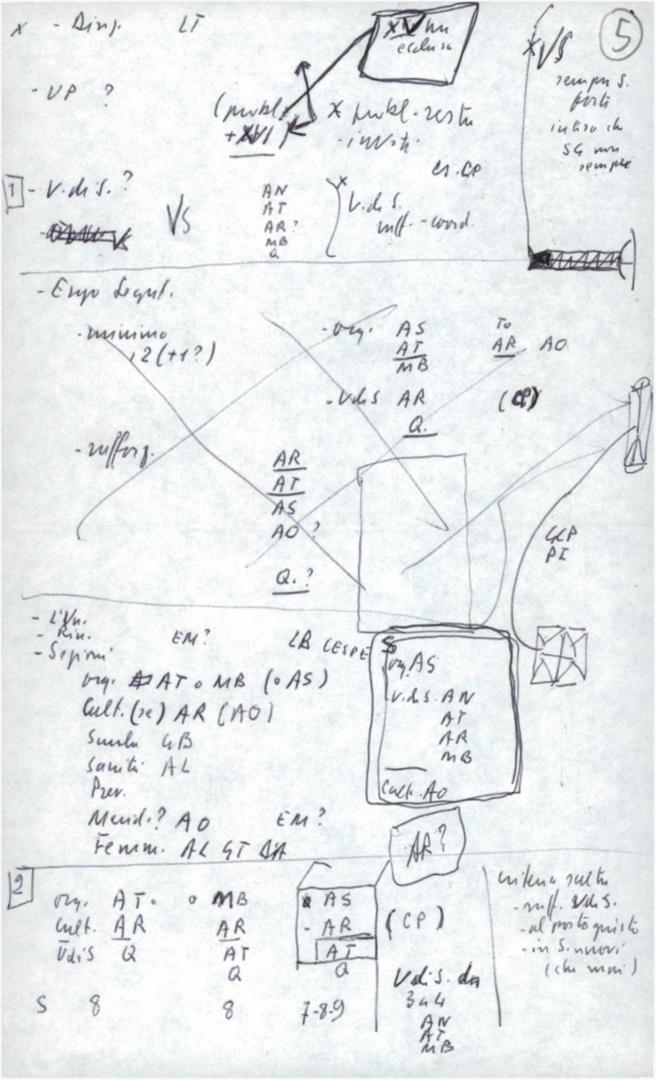 x - Dirig. LT
XV non
esclusa
5
XVS
sempre S.
forte
inteso che
SG non
sempre
- VP ?
(probl.
+ XVI)
x probl. resta
CP
1 - V. di S. ?
VS
AN
AT
AR?
MB
Q
x V. di S.
uff. - coord.
- minimo
2 (+1?)
- org. AS
AT
MB
To
AR AO
- V di S AR
Q.
(CP)
- rafforz.
AR
AT
AS
AO?
Q.?
GCP
PI
- Rin.
- Sezioni
EM?
LB CESPE
org. AT o MB (o AS)
Cult. (se) AR (AO)
Scuola GB
Sanità AL
Prev.
Merid.? AO EM?
Femm. AL GT
S
org. AS
V. di S. AN
AT
AR
MB
Cult. AO
AR?
2
org. AT o MB
Cult. AR AR
V di S Q AT
Q
S 8 8 7-8-9
AS
- AR
AT
Q
(CP)
V di S. da
3 a 4
AN
AT
MB
criterio scelta
- raff. V di S.
- al posto giusto
- in S. nuovi